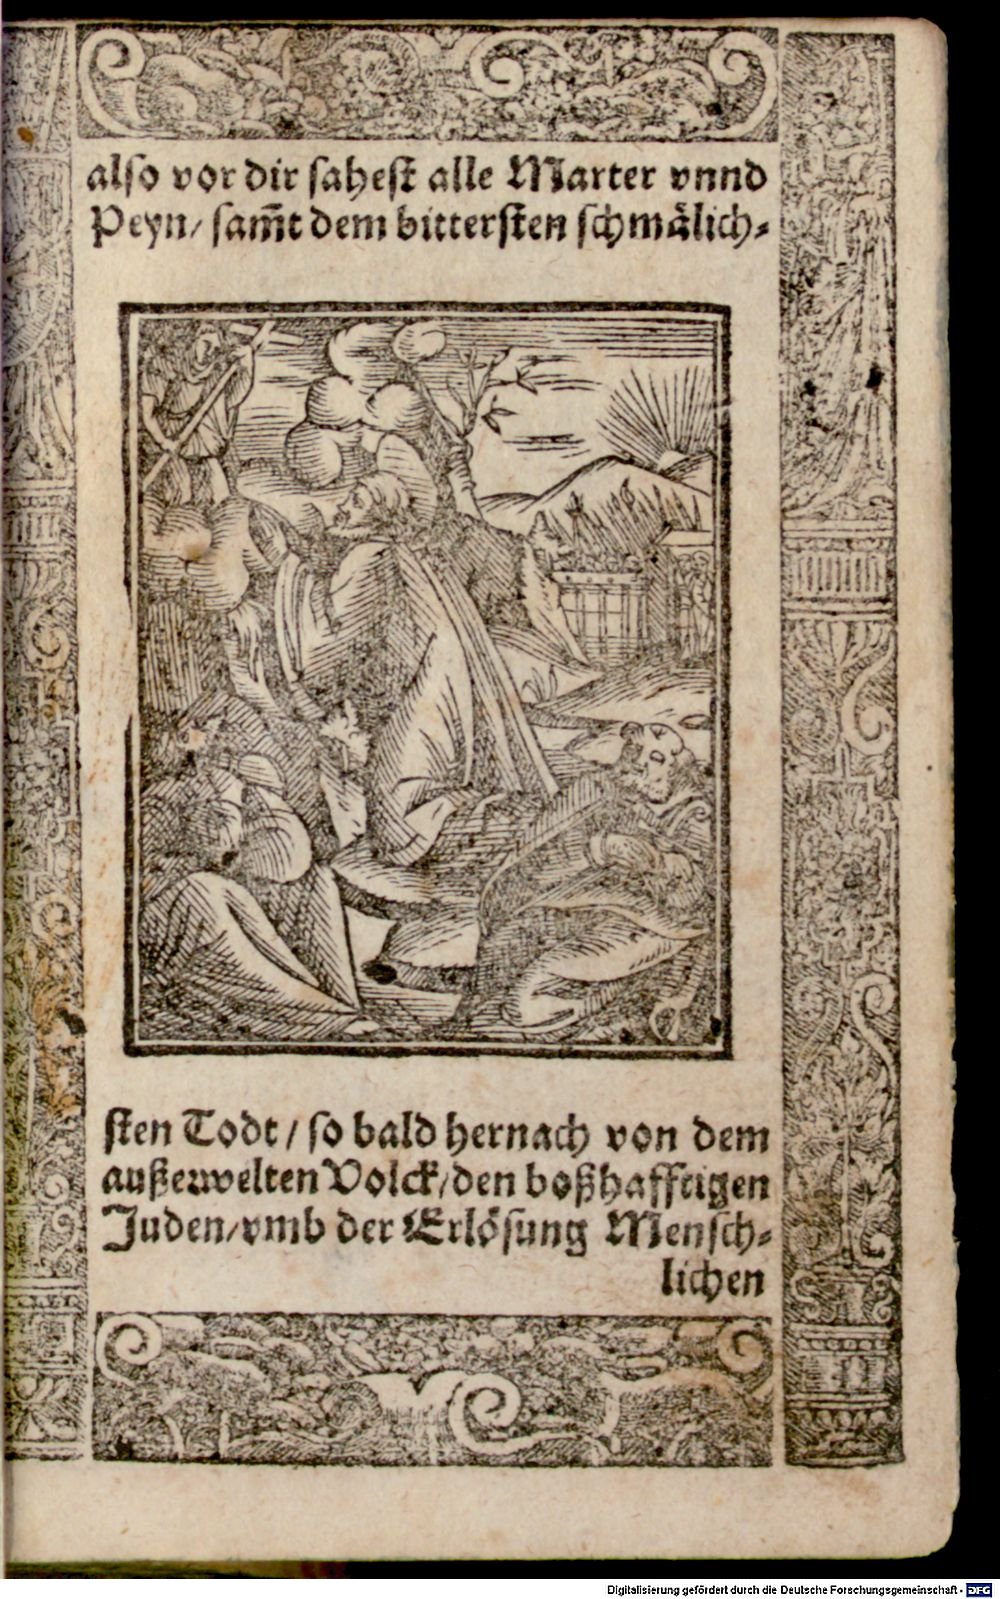 also vor dir sahest alle Marter vnnd
Peyn/ sam̃t dem bittersten schmålich⸗
sten Todt / so bald hernach von dem
außerwelten Volck/den boßhafftigen
Juden/vmb der Erlösung Mensch⸗
lichen
Digitalisierung gefördert durch die Deutsche Forschungsgemeinschaft - DFG